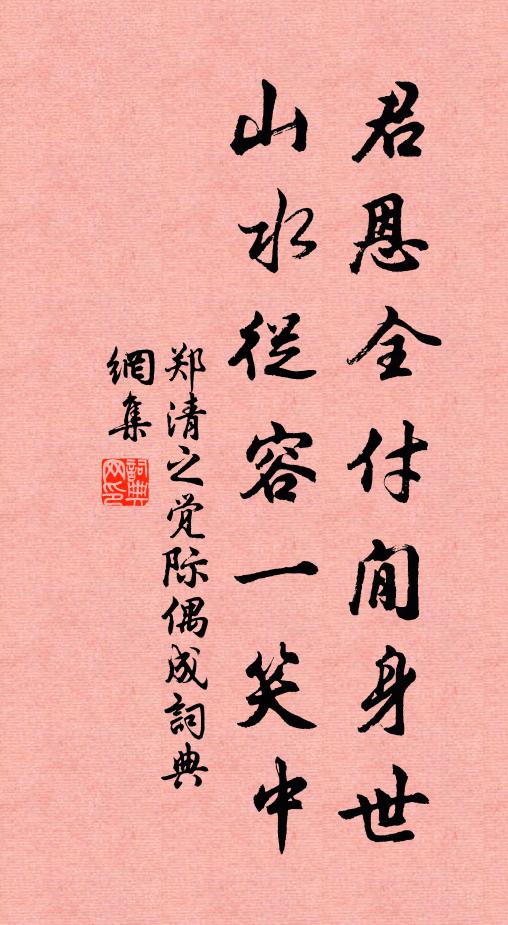 君恩全付闲身世
山水從容一笑中
郑清之觉际偶成詞典
網集
詞典网印